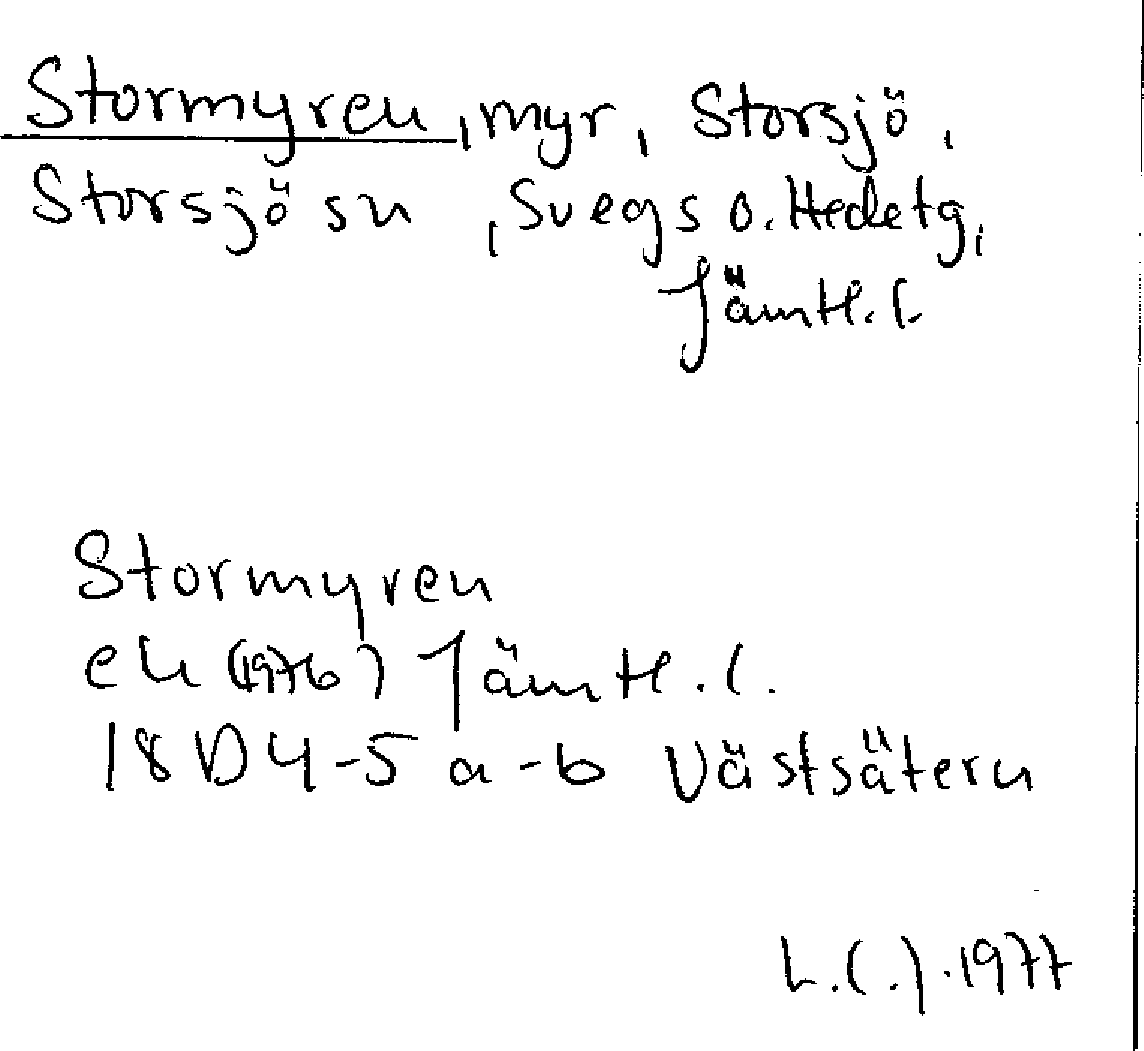 Stormyren, myr, Storsjö,
Storsjö sn, Svegs o. Hedetg,
Jämtl. l.
Stormyren
ek (1976) Jämtl. l.
18D 4-5 a-b Västsätern
L.(.).1977